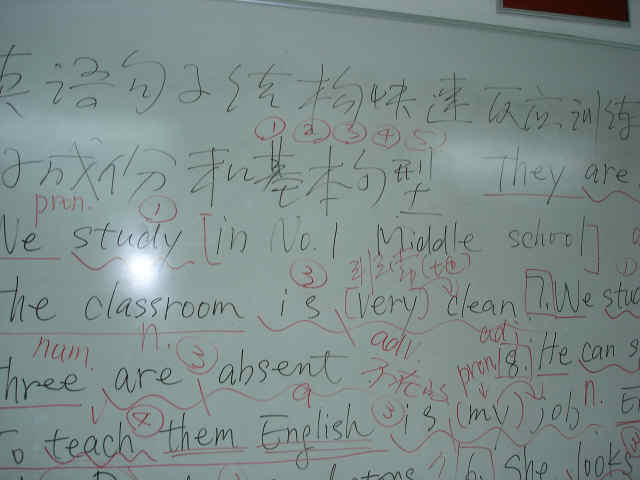 英语句子结构快速反应训练
①②③④⑤
子成份和基本句型 They are
pron. ①
We study [in No.1 Middle school]
③ ①
the classroom is (very) clean. 7. We stud
num. n. ③ adv. adj
three are absent pron 8. He can s
④ a ③ n.
To teach them English is (my) job
6. She looks